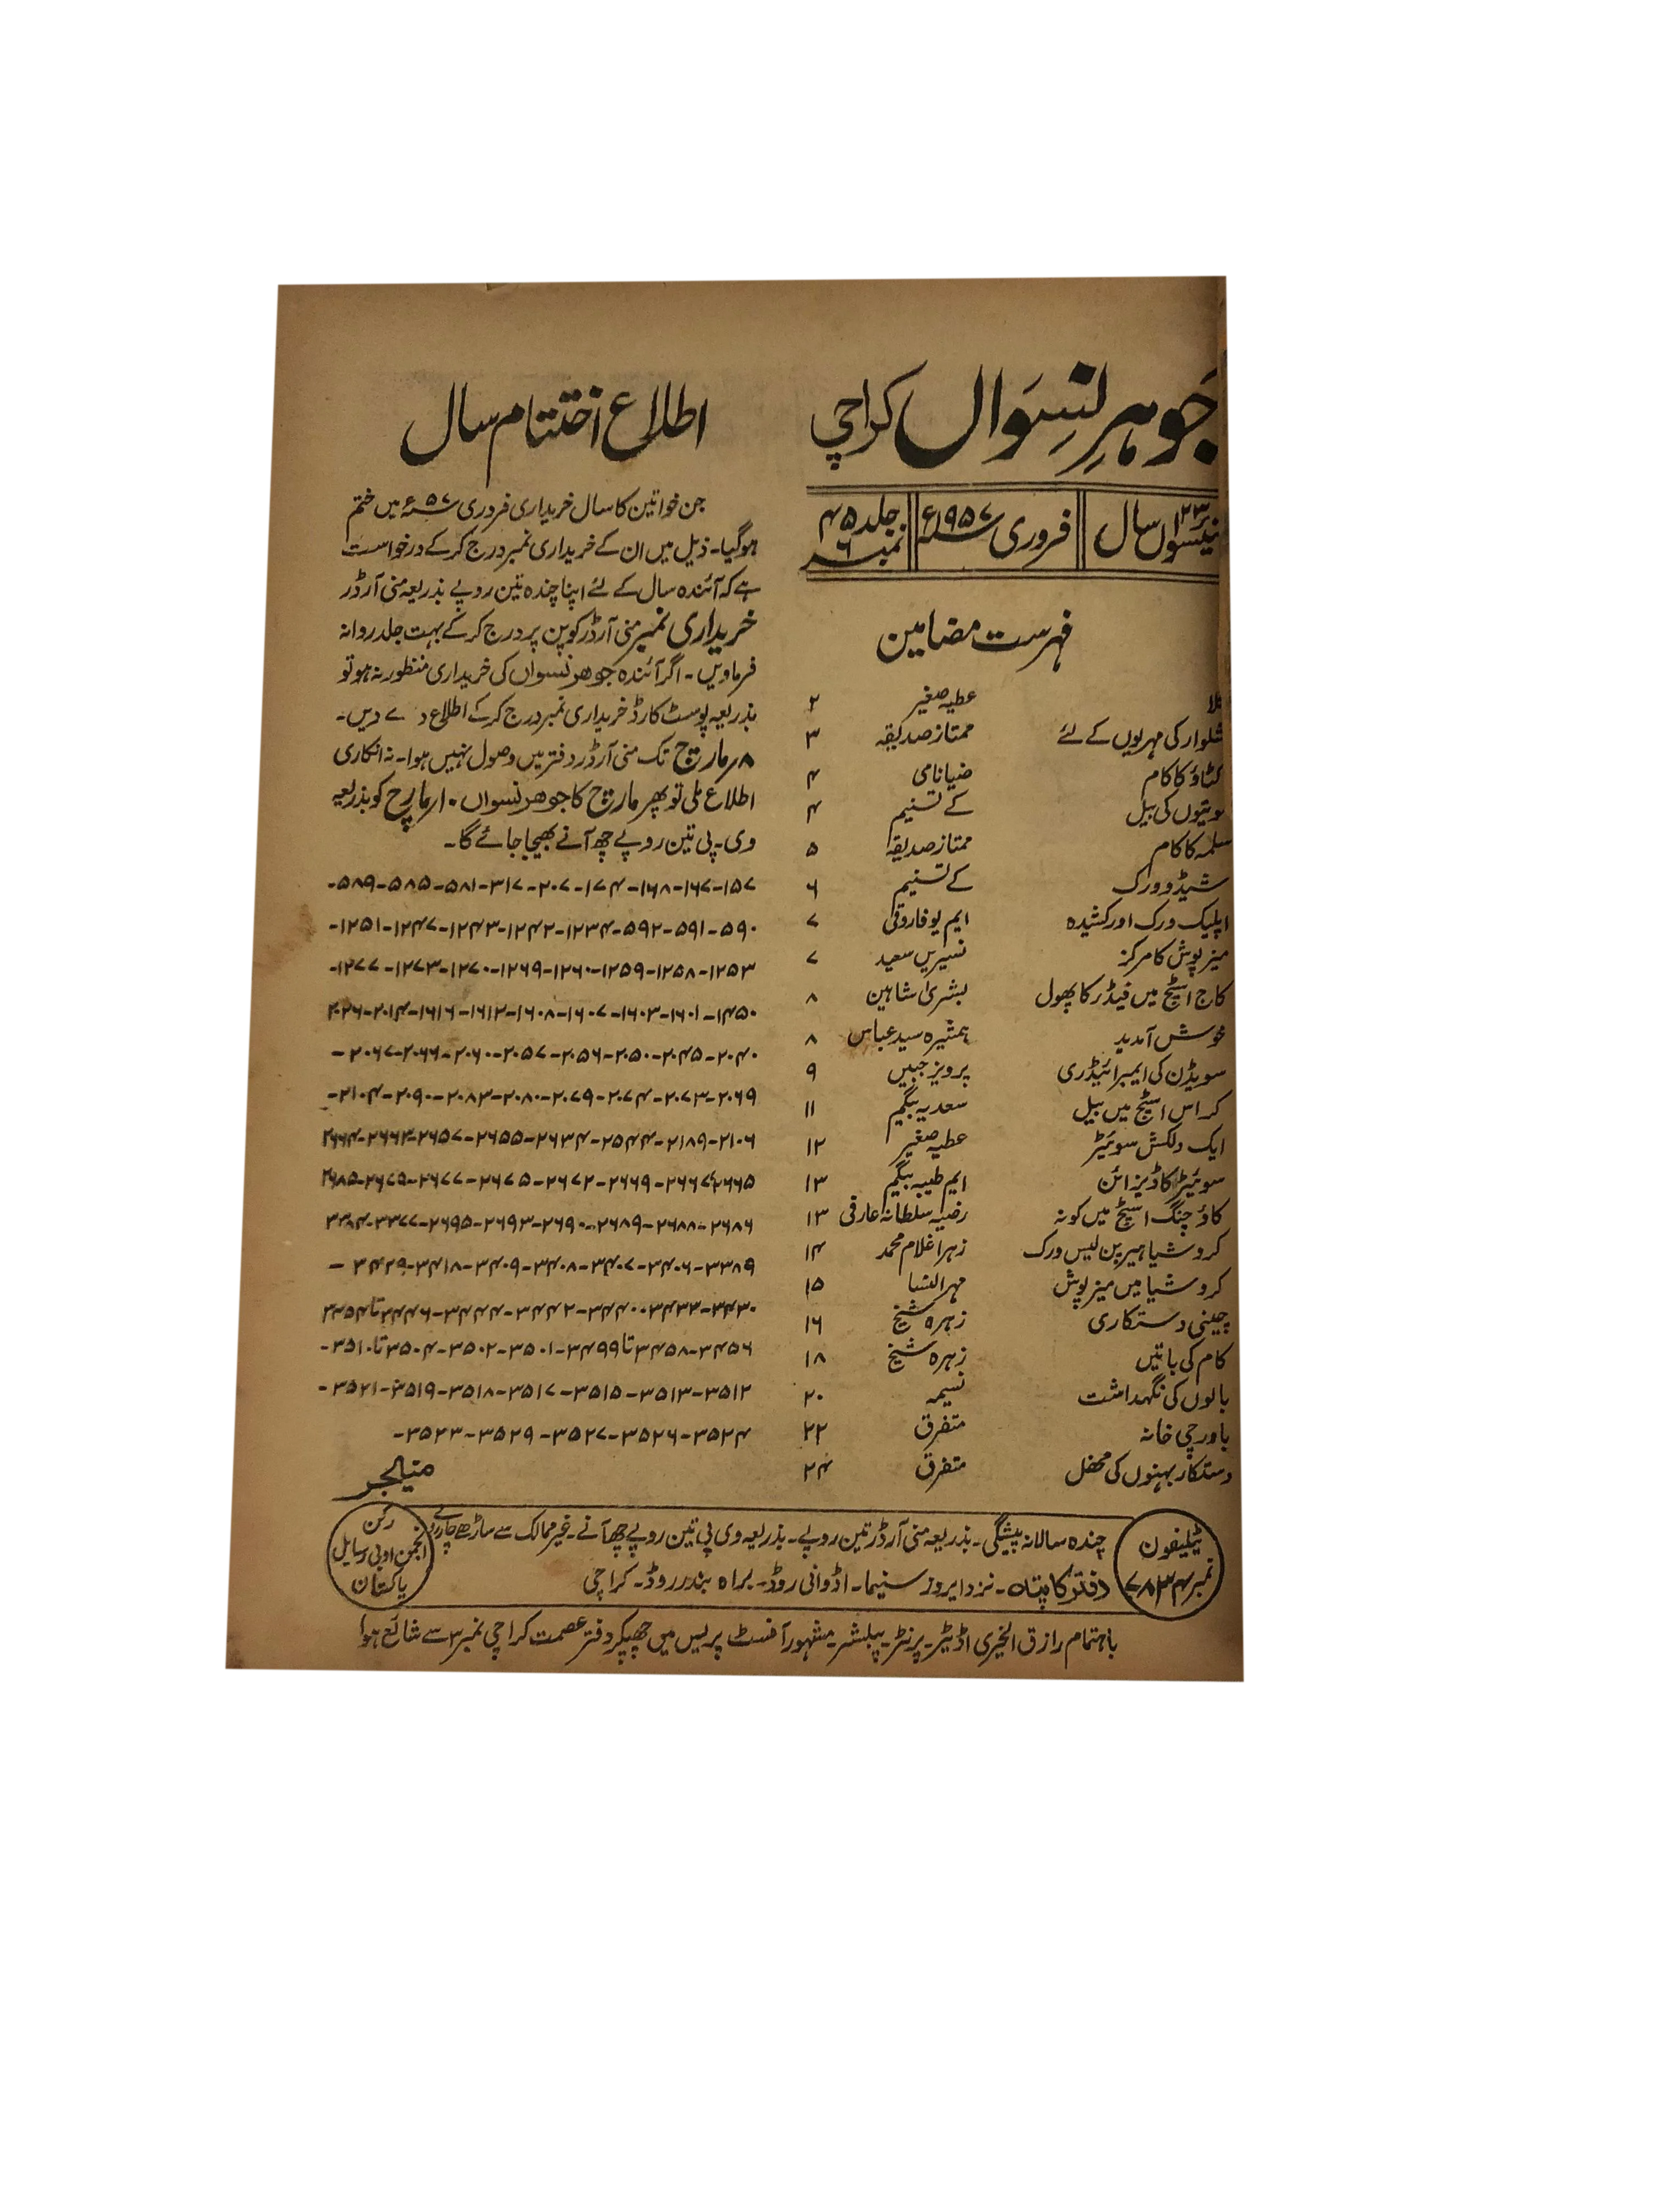 جوہرِ نسواں کراچی
تیئسواں سال ۲۳ | فروری ۱۹۵۷ء | جلد ۴۵ نمبر ۶
فہرست مضامین
عطیہ صغیر ۲
شلوار کی مہریوں کے لئے ممتاز صدیقہ ۳
کٹاؤ کا کام ضیا نامی ۴
موتیوں کی بیل کے تسنیم ۴
سلمہ کا کام ممتاز صدیقہ ۵
شیڈو ورک کے تسنیم ۶
اپلیک ورک اور کشیدہ ایم یو فاروقی ۷
میز پوش کا مرکز نسیریں سعید ۷
کاج اسٹچ میں فیڈر کا پھول بشریٰ شاہین ۸
خوش آمدید ہمشیرہ سید عباس ۸
سویڈن کی ایمبرائیڈری پرویز جبیں ۹
کراس اسٹچ میں بیل سعدیہ بیگم ۱۱
ایک دلکش سوئیٹر عطیہ صغیر ۱۲
سوئیٹر کا ڈیزائن ایم طیبہ بیگم ۱۳
کاؤچنگ اسٹچ میں کونہ رضیہ سلطانہ عارفی ۱۳
کروشیا ہیرپن لیس ورک زہرا غلام محمد ۱۴
کروشیا میں میز پوش مہرالنسا ۱۵
چینی دستکاری زہرہ شیخ ۱۶
کام کی باتیں زہرہ شیخ ۱۸
بالوں کی نگہداشت نسیمہ ۲۰
باورچی خانہ متفرق ۲۲
دستکار بہنوں کی محفل متفرق ۲۴
اطلاع اختتام سال
جن خواتین کا سال خریداری فروری ۵۷ء میں ختم
ہوگیا۔ ذیل میں ان کے خریداری نمبر درج کرکے درخواست
ہے کہ آئندہ سال کے لئے اپنا چندہ تین روپے بذریعہ منی آرڈر
خریداری نمبر منی آرڈر کوپن پر درج کرکے بہت جلد روانہ
فرماویں۔ اگر آئندہ جوہر نسواں کی خریداری منظور نہ ہو تو
بذریعہ پوسٹ کارڈ خریداری نمبر درج کرکے اطلاع دے دیں۔
۸ مارچ تک منی آرڈر دفتر میں وصول نہیں ہوا۔ نہ انکاری
اطلاع ملی تو پھر مارچ کا جوہر نسواں ۱۰ مارچ کو بذریعہ
وی۔پی تین روپے چھ آنے بھیجا جائے گا۔
۱۵۷-۱۶۷-۱۶۸-۱۷۴-۲۰۷-۳۱۷-۵۸۱-۵۸۵-۵۸۹-
۵۹۰-۵۹۱-۵۹۲-۱۲۳۴-۱۲۴۲-۱۲۴۳-۱۲۴۷-۱۲۵۱-
۱۲۵۳-۱۲۵۸-۱۲۵۹-۱۲۶۰-۱۲۶۹-۱۲۷۰-۱۲۷۳-۱۲۷۷-
۱۴۵۰-۱۶۰۱-۱۶۰۳-۱۶۰۷-۱۶۰۸-۱۶۱۲-۱۶۱۶-۲۰۱۴-۲۰۲۶
۲۰۴۰-۲۰۴۵-۲۰۵۰-۲۰۵۶-۲۰۵۷-۲۰۶۰-۲۰۶۶-۲۰۶۷-
۲۰۶۹-۲۰۷۳-۲۰۷۴-۲۰۷۹-۲۰۸۰-۲۰۸۳-۲۰۹۰-۲۱۰۴-
۲۱۰۶-۲۱۸۹-۲۵۴۴-۲۶۳۴-۲۶۵۵-۲۶۵۷-۲۶۶۳-۲۶۶۴
۲۶۶۵-۲۶۶۷-۲۶۶۹-۲۶۷۲-۲۶۷۵-۲۶۷۷-۲۶۷۹-۲۶۸۵
۲۶۸۶-۲۶۸۸-۲۶۸۹-۲۶۹۰-۲۶۹۳-۲۶۹۵-۳۳۷۷-۳۳۸۴
۳۳۸۹-۳۴۰۶-۳۴۰۷-۳۴۰۸-۳۴۰۹-۳۴۱۸-۳۴۲۹-
۳۴۳۰-۳۴۳۲-۳۴۴۰-۳۴۴۲-۳۴۴۴-۳۴۴۶تا۳۴۵۴
۳۴۵۶-۳۴۵۸تا۳۴۹۹-۳۵۰۱-۳۵۰۲-۳۵۰۴تا۳۵۱۰-
۳۵۱۲-۳۵۱۳-۳۵۱۵-۳۵۱۷-۳۵۱۸-۳۵۱۹-۳۵۲۱-
۳۵۲۴-۳۵۲۶-۳۵۲۷-۳۵۲۹-۳۵۲۳-
منیجر
ٹیلیفون
نمبر ۷۸۳۴
چندہ سالانہ پیشگی۔ بذریعہ منی آرڈر تین روپے۔ بذریعہ وی پی تین روپے چھ آنے۔ غیر ممالک سے ساڑھے چار روپے
دفتر کا پتہ۔ نزد ایروز سنیما۔ اڈوانی روڈ۔ براہ بندر روڈ۔ کراچی
رکن
انجمن ادبی رسایل
پاکستان
باہتمام رازق الخیری اڈیٹر۔ پرنٹر۔ پبلشر۔ مشہور آفسٹ پریس میں چھپکر دفتر عصمت کراچی نمبر ۳ سے شائع ہوا